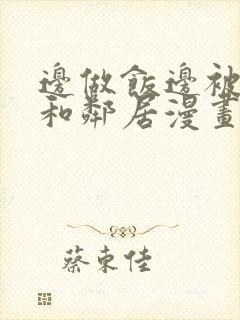 邊做飯邊被
和鄰居漫畫
蔡東佳